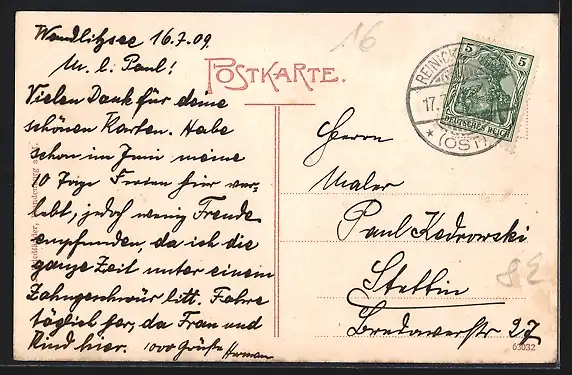 Wandlitzsee 16.7.09.
M. l. Paul!
Vielen Dank für deine
schönen Karten. Habe
schon im Juni meine
10 Tage Ferien hier ver-
lebt, jedoch wenig Freude
empfunden, da ich die
ganze Zeit unter einem
Zahngeschwür litt. Fahre
täglich her, da Frau und
Kind hier. 1000 Grüße Herman
POSTKARTE.
16
5 5
DEUTSCHES REICH
REINICK
17.
(OST)
Herrn
Maler
Paul Kedrowski
Stettin
Bredowerstr 27
63032